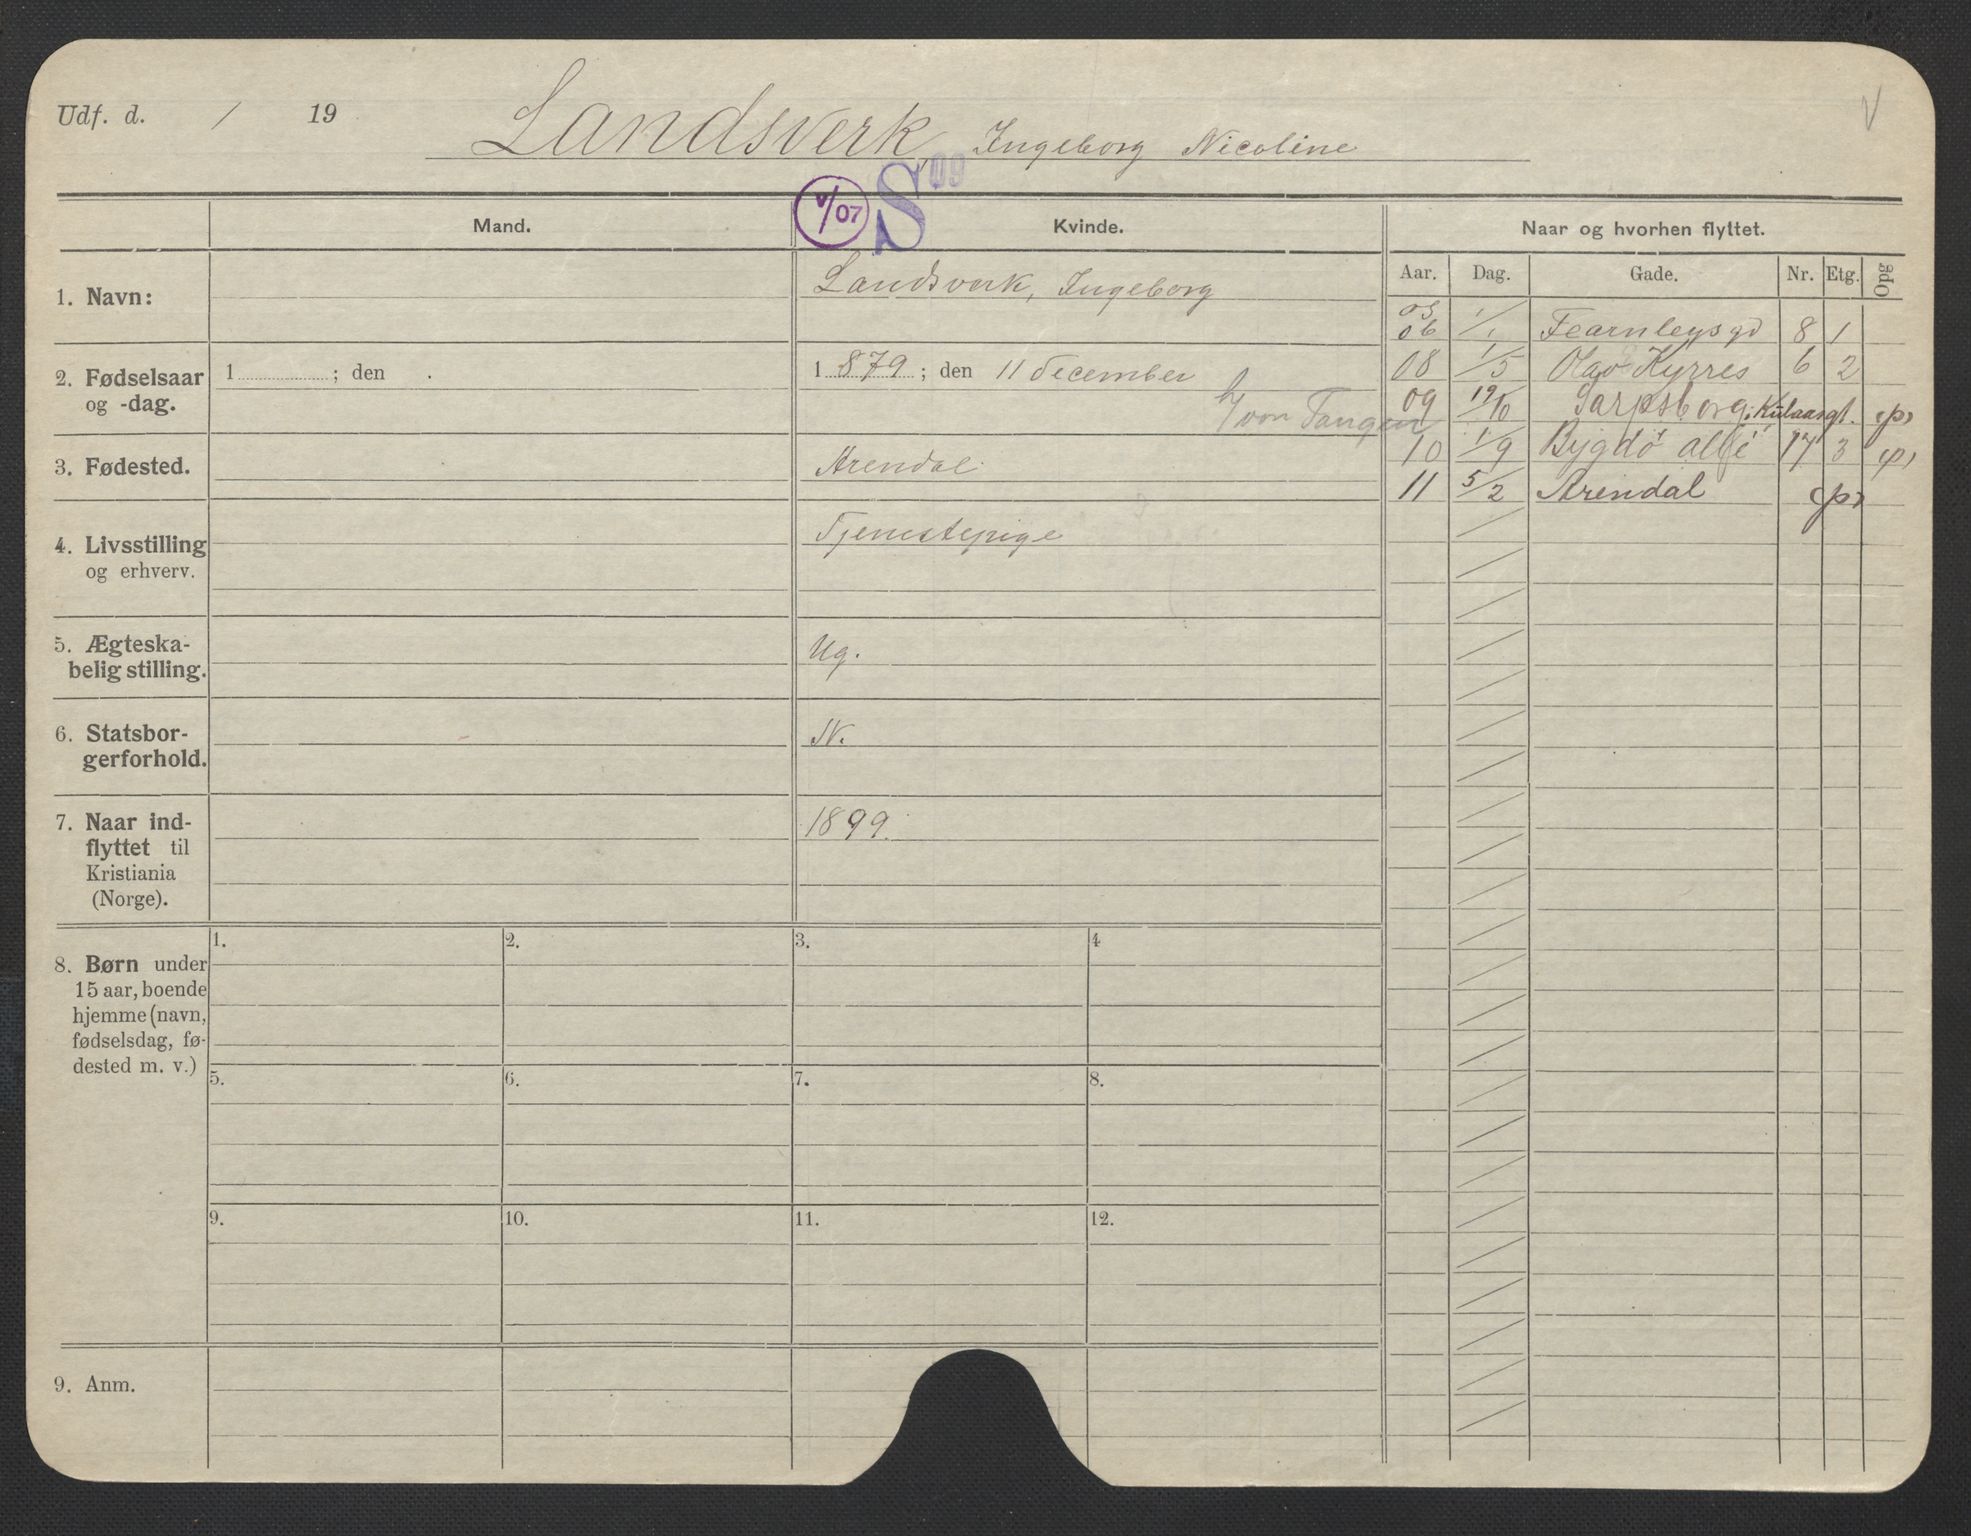 Udf. d. / 19
Landsverk, Ingeborg Nicoline
V
V/07 S 09
Mand.
Kvinde.
Naar og hvorhen flyttet.
Aar. Dag. Gade. Nr. Etg. Opg
1. Navn:
Landsverk, Ingeborg
05
06 1/1 Fearnleysgd 8 1
2. Fødselsaar og -dag.
1 ; den .
1 879 ; den 11 December
08 1/5 Olav Kyrres 6 2
09 19/10 Sarpsborg, (p)
10 1/9 Bygdø allé 17 3 (p)
3. Fødested.
Arendal
11 5/2 Arendal (p)
4. Livsstilling
og erhverv.
Tjenestepige
5. Ægteska-
belig stilling.
Ug.
6. Statsbor-
gerforhold.
N.
7. Naar ind-
flyttet til
Kristiania
(Norge).
1899.
8. Børn under
15 aar, boende
hjemme (navn,
fødselsdag, fø-
dested m. v.)
1. 2. 3. 4
5. 6. 7. 8.
9. 10. 11. 12.
9. Anm.